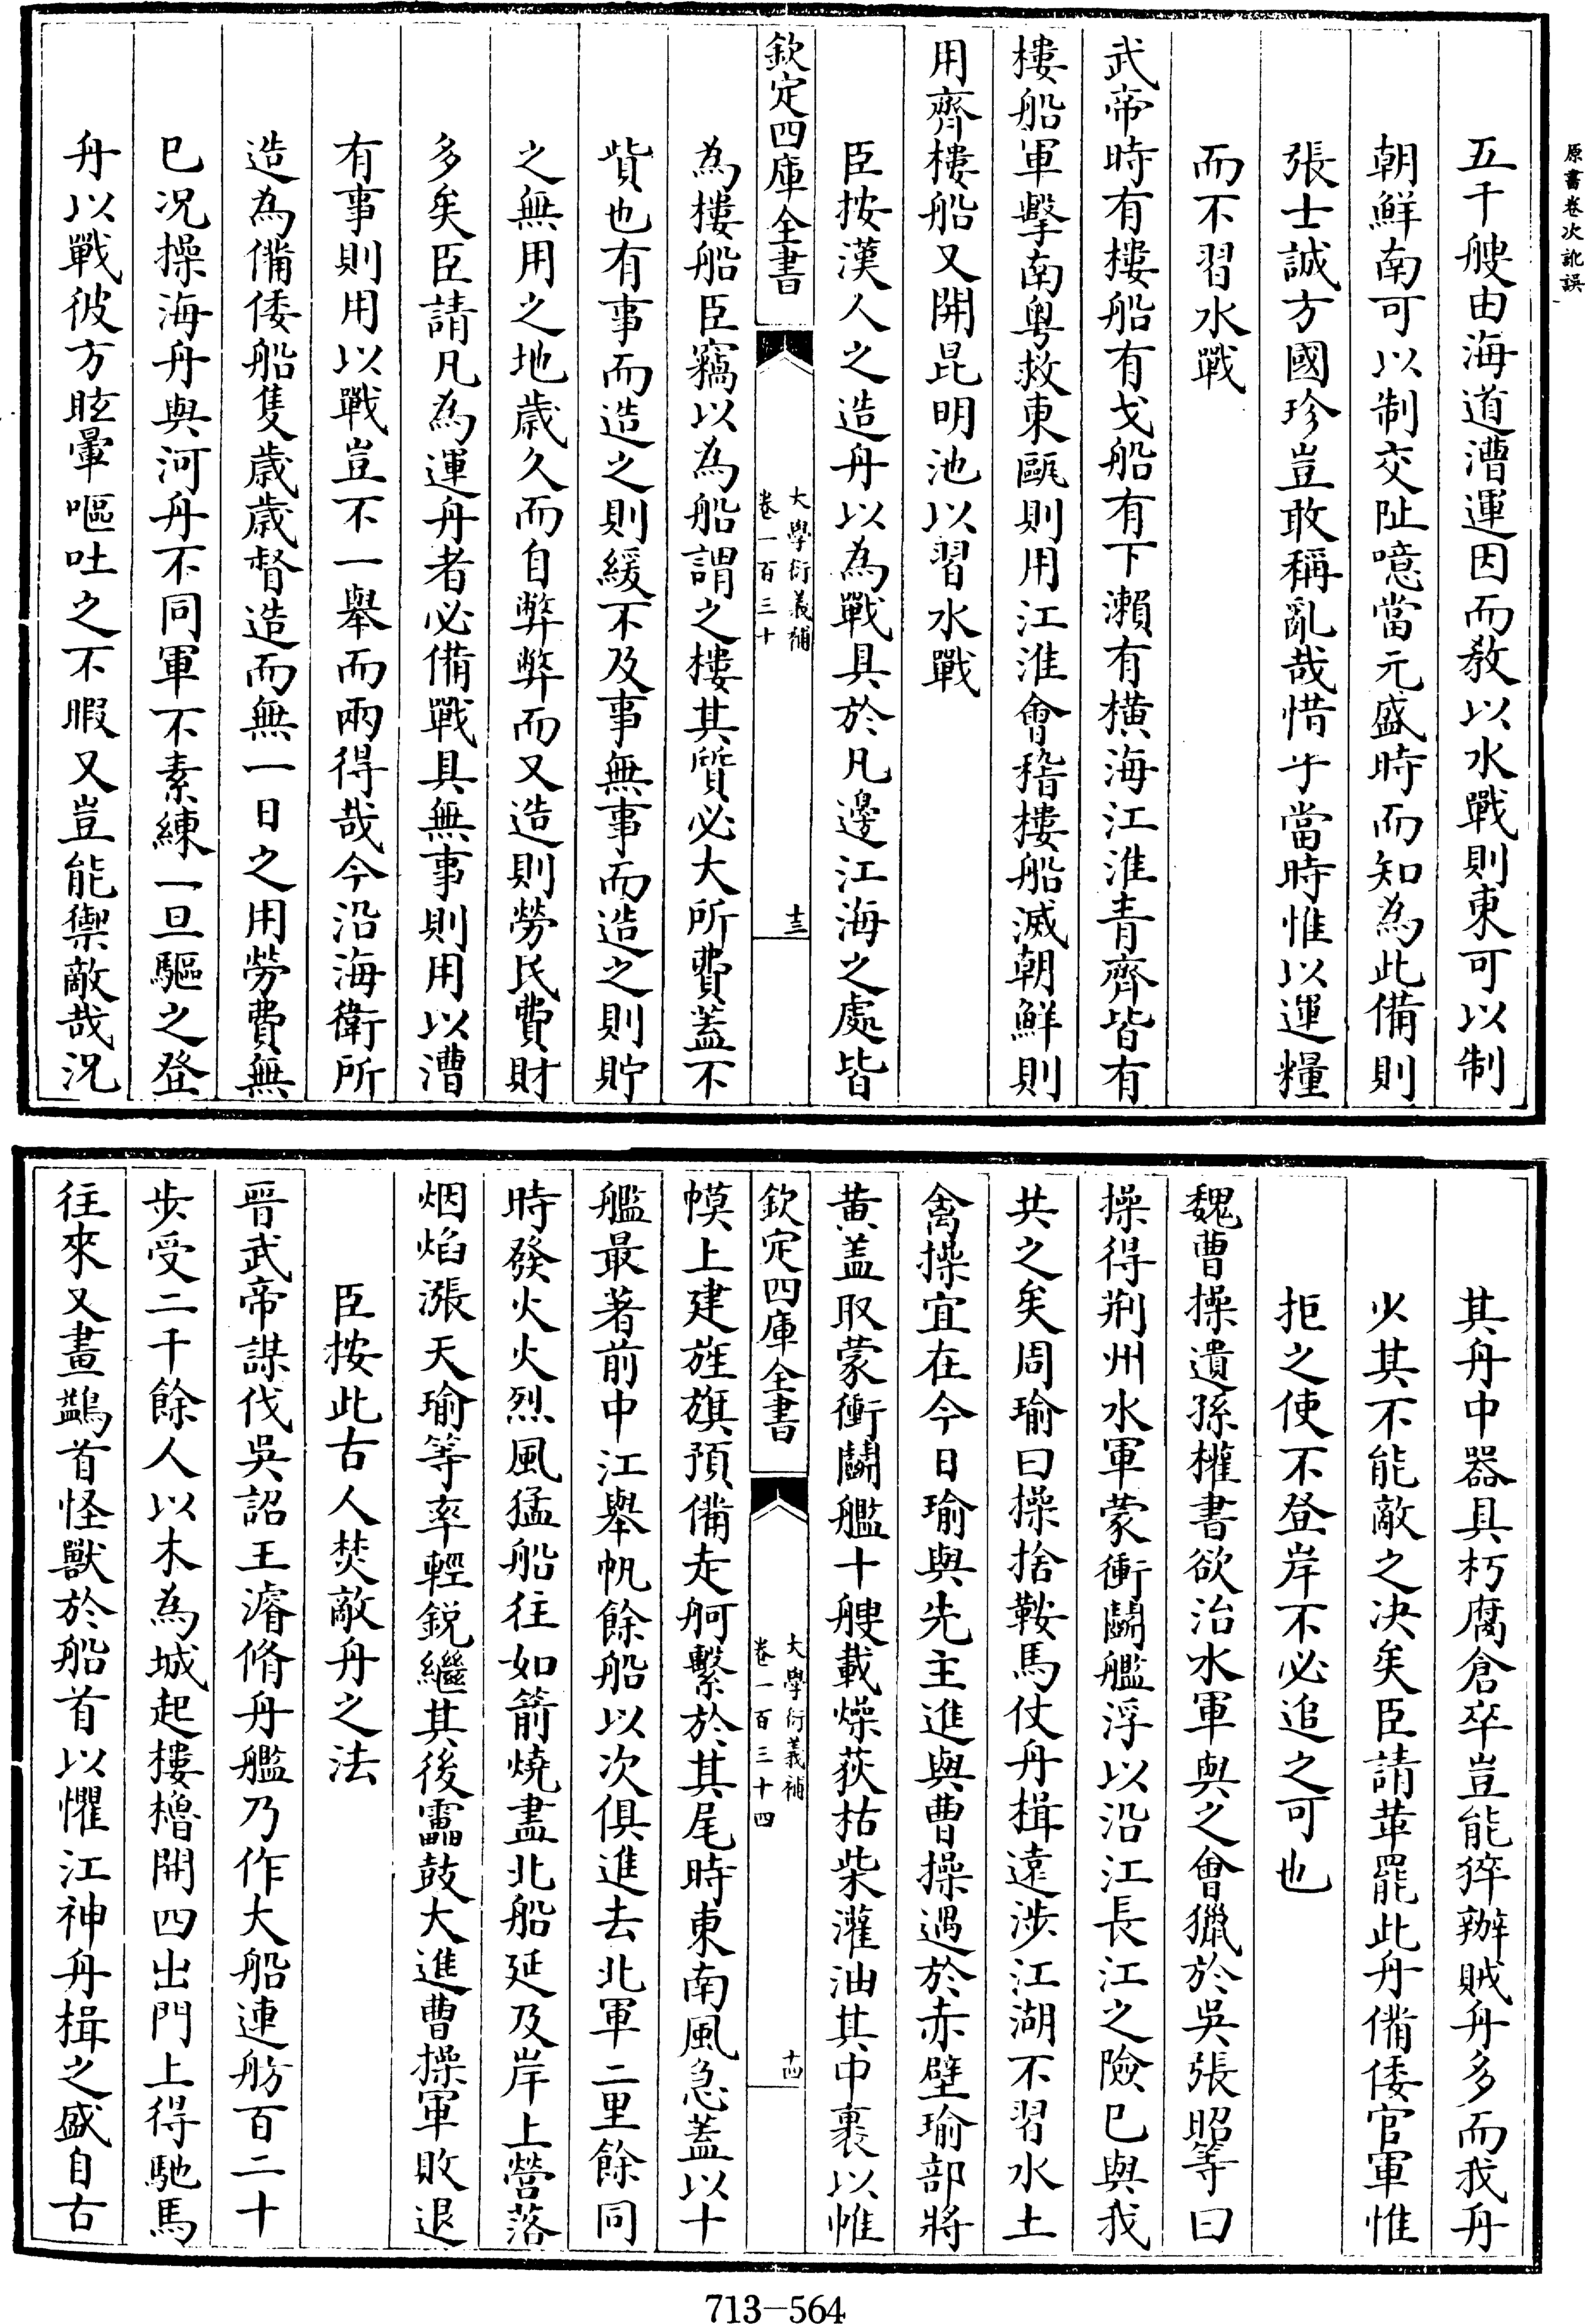 原書卷次訛誤
五千艘由海道漕運因而教以水戰則東可以制
朝鮮南可以制交阯噫當元盛時而知為此備則
張士誠方國珍豈敢稱亂哉惜乎當時惟以運糧
而不習水戰
武帝時有樓船有戈船有下瀨有橫海江淮青齊皆有
樓船軍擊南粤救東甌則用江淮會稽樓船滅朝鮮則
用齊樓船又開昆明池以習水戰
臣按漢人之造舟以為戰具於凡邊江海之處皆
欽定四庫全書
大學衍義補
卷一百三十
十三
為樓船臣竊以為船謂之樓其質必大所費蓋不
貲也有事而造之則緩不及事無事而造之則貯
之無用之地歲久而自弊弊而又造則勞民費財
多矣臣請凡為運舟者必備戰具無事則用以漕
有事則用以戰豈不一舉而兩得哉今沿海衛所
造為備倭船隻歲歲督造而無一日之用勞費無
已况操海舟與河舟不同軍不素練一旦驅之登
舟以戰彼方眩暈嘔吐之不暇又豈能禦敵哉况
其舟中器具朽腐倉卒豈能猝辦賊舟多而我舟
少其不能敵之决矣臣請革罷此舟備倭官軍惟
拒之使不登岸不必追之可也
魏曹操遺孫權書欲治水軍與之會獵於吳張昭等曰
操得荆州水軍蒙衝鬭艦浮以沿江長江之險已與我
共之矣周瑜曰操捨鞍馬仗舟楫遠涉江湖不習水土
禽操宜在今日瑜與先主進與曹操遇於赤壁瑜部將
黄盖取蒙衝鬭艦十艘載燥荻枯柴灌油其中裹以帷
欽定四庫全書
大學衍義補
卷一百三十四
十四
幙上建旌旗預備走舸繫於其尾時東南風急蓋以十
艦最著前中江舉帆餘船以次俱進去北軍二里餘同
時發火火烈風猛船往如箭燒盡北船延及岸上營落
烟焰漲天瑜等率輕鋭繼其後靁鼓大進曹操軍敗退
臣按此古人焚敵舟之法
晉武帝謀伐吳詔王濬脩舟艦乃作大船連舫百二十
步受二千餘人以木為城起樓櫓開四出門上得馳馬
往來又畫鷁首怪獸於船首以懼江神舟楫之盛自古
713-564